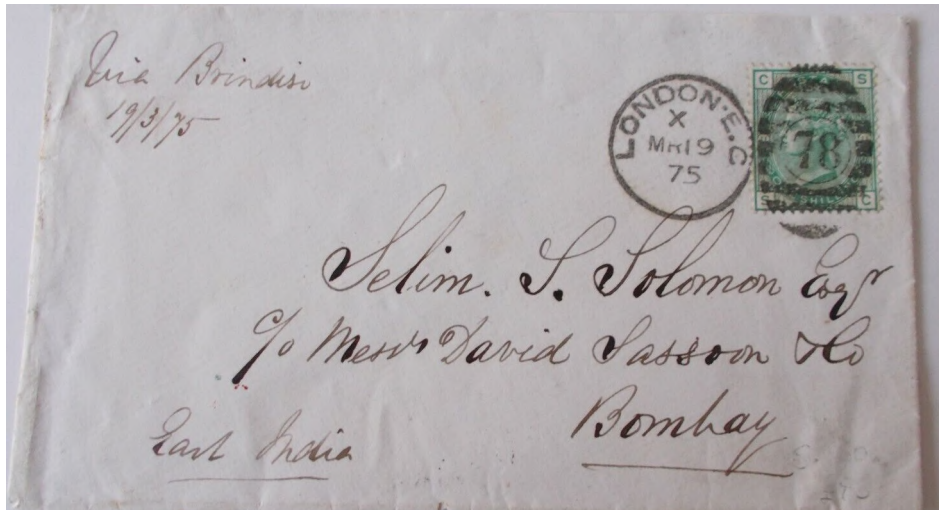 Via Brindisi
19/3/75
LONDON·E.C
X
MR19
75
C S
78
S C
Selim. S. Solomon Esqr
c/o Messrs David Sassoon & Co
Bombay
East India